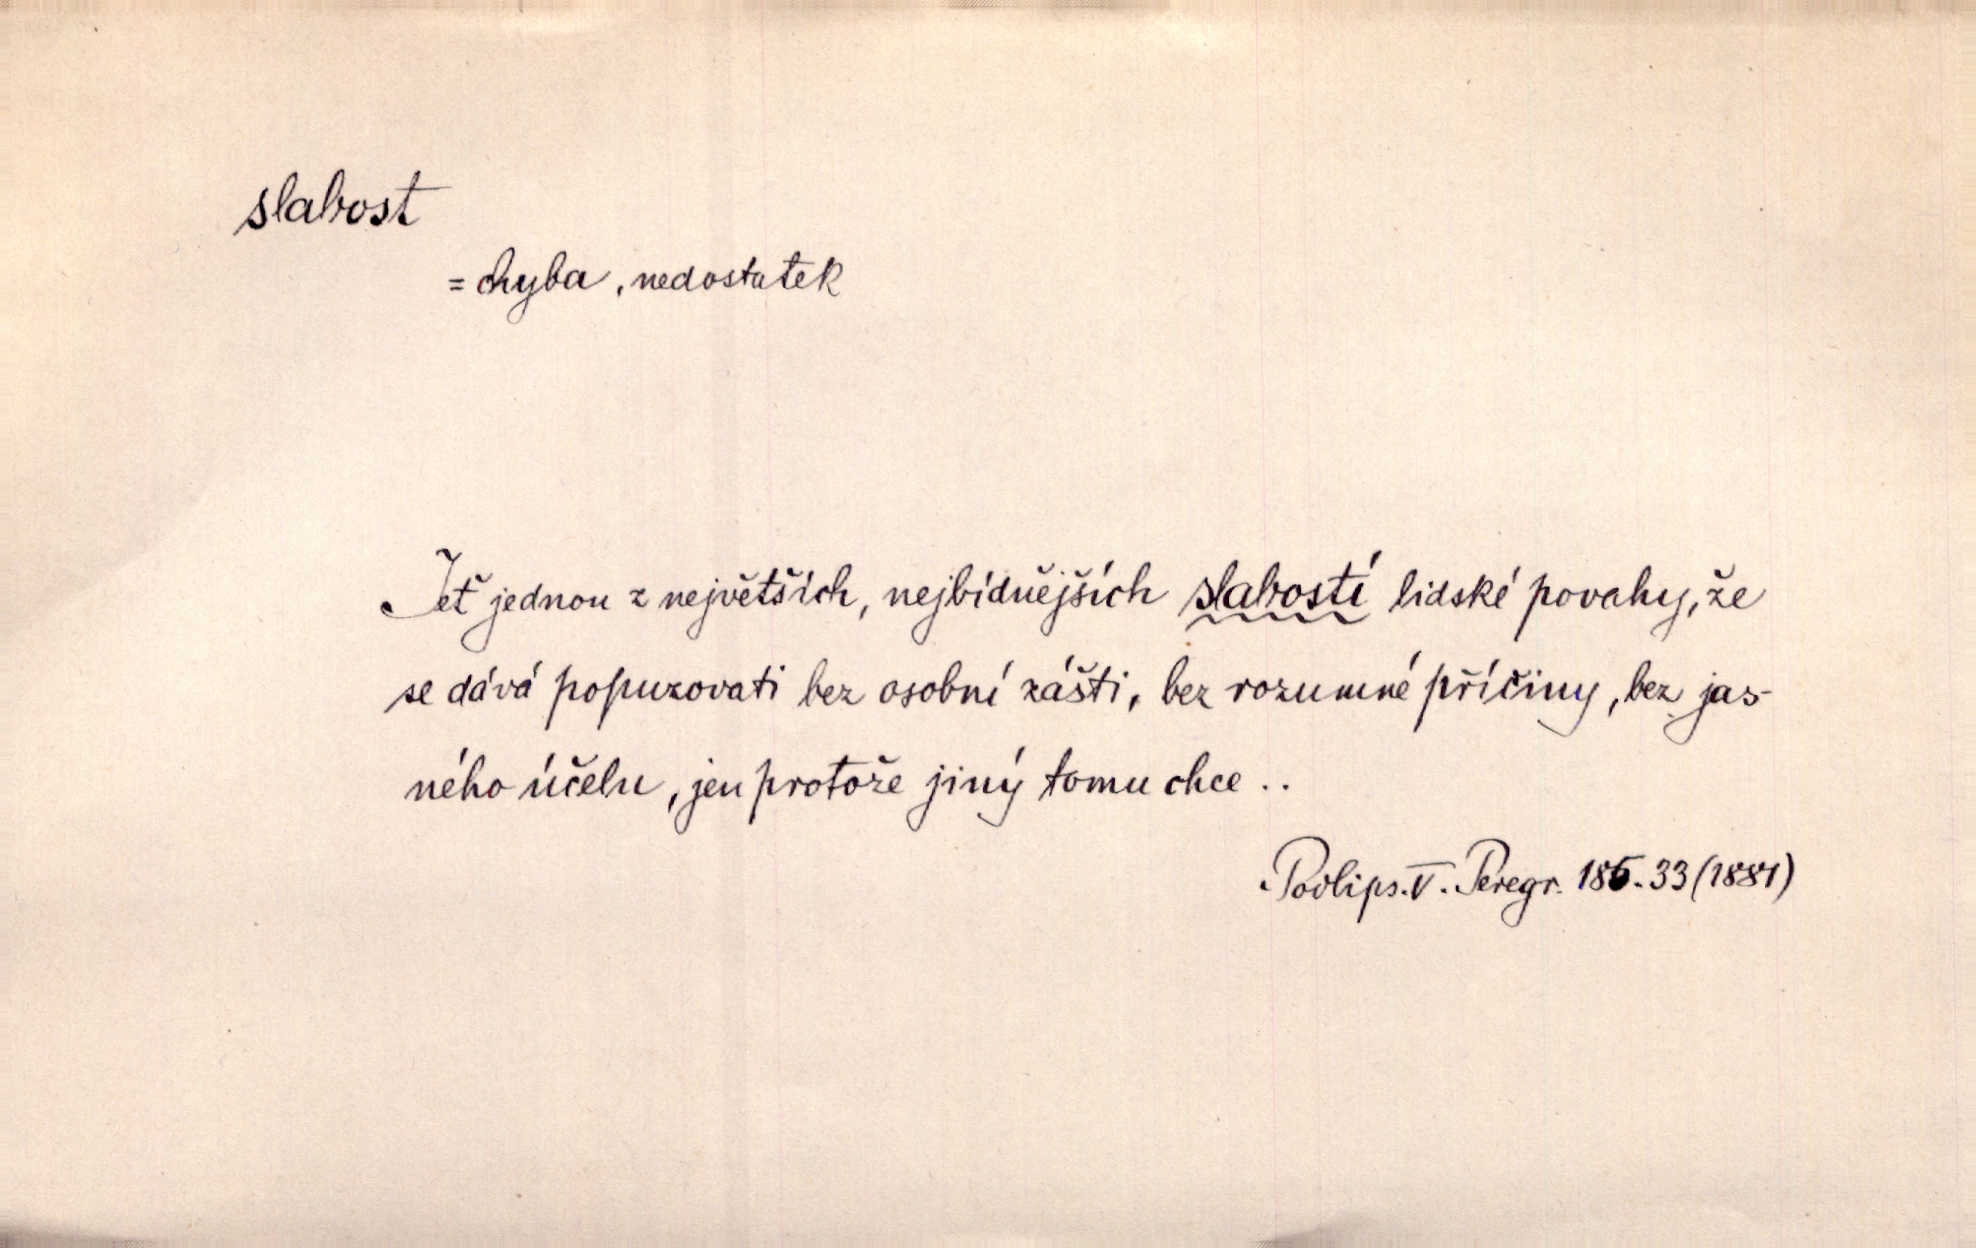 slabost
= chyba, nedostatek
Jeť jednou z největších, nejbídnějších slabostí lidské povahy, že
se dává popuzovati bez osobní zášti, bez rozumné příčiny, bez jas-
ného účelu, jen protože jiný tomu chce ..
Podlips. V. Peregr. 186. 33 (1881)